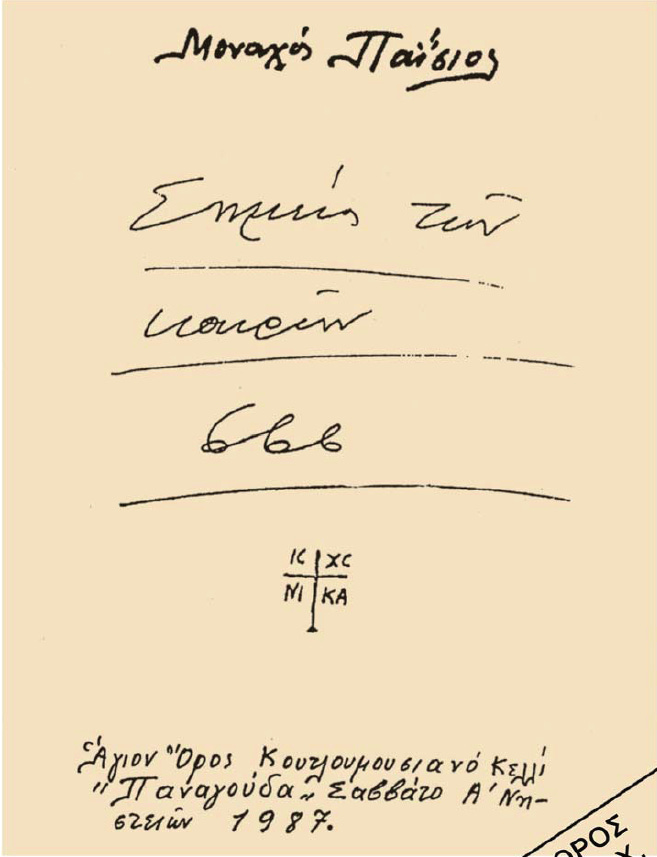 Μοναχός Παΐσιος
Σημεῖα τῶν
καιρῶν
666
ΙC ΧC
ΝΙ ΚΑ
Ἅγιον Ὄρος Κουτλουμουσιανό Κελλί
"Παναγούδα„ Σαββάτο Α' Νη-
στειῶν 1987.
ΟΡΟΣ